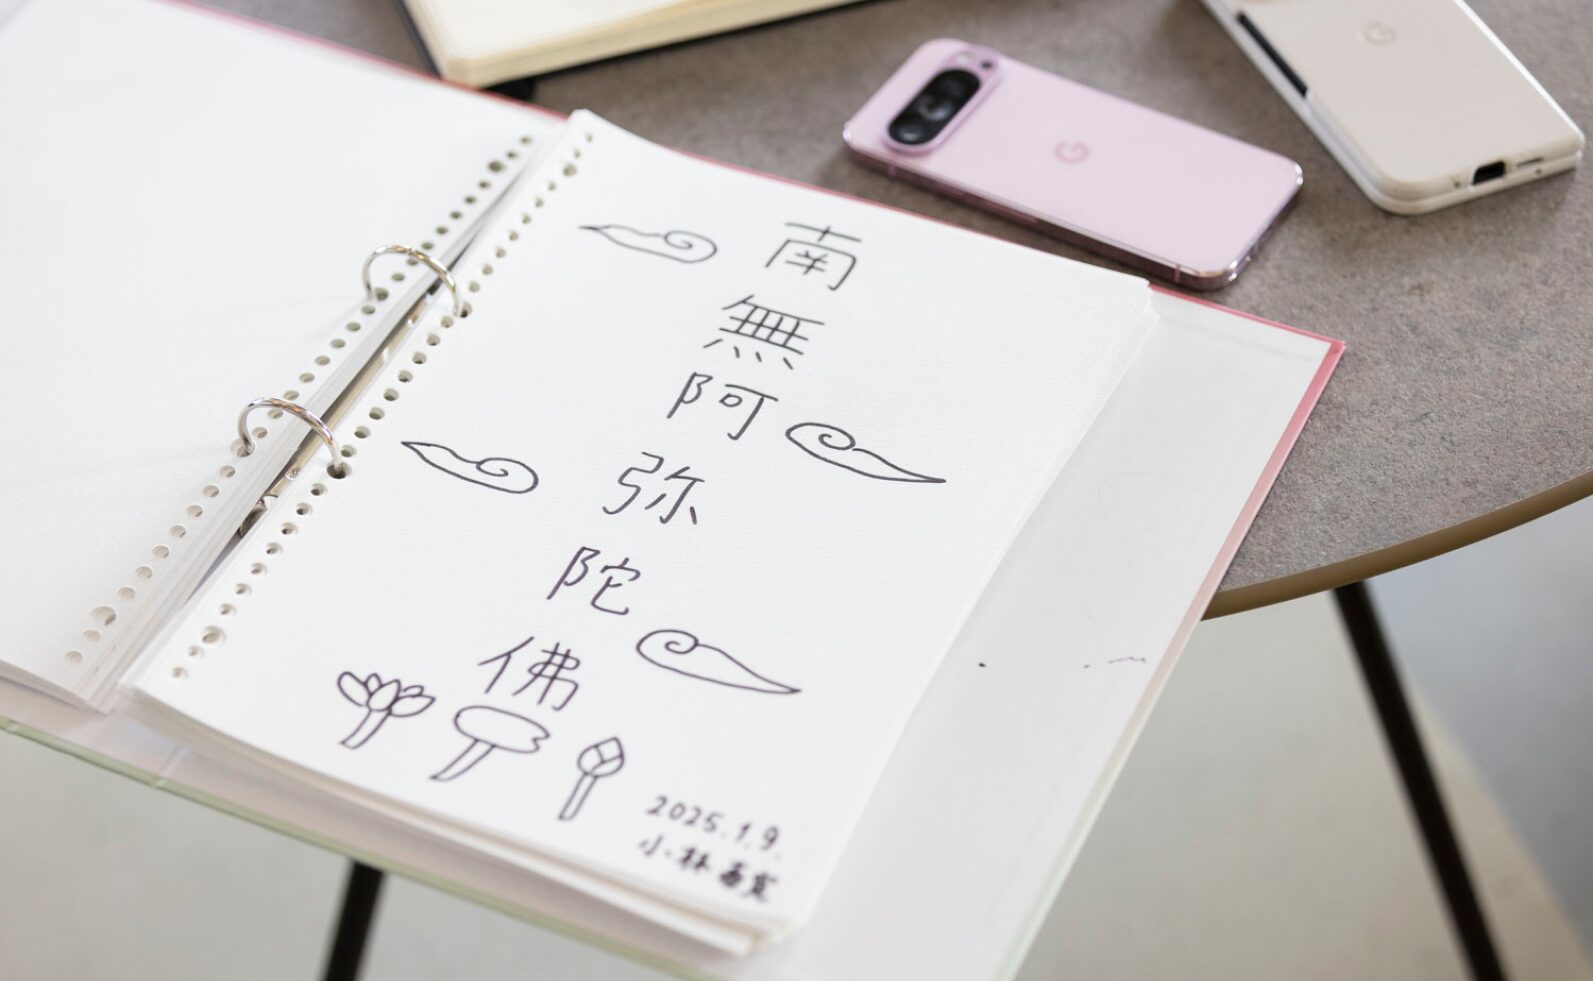 南無阿弥陀佛
2025.1.9.
小林